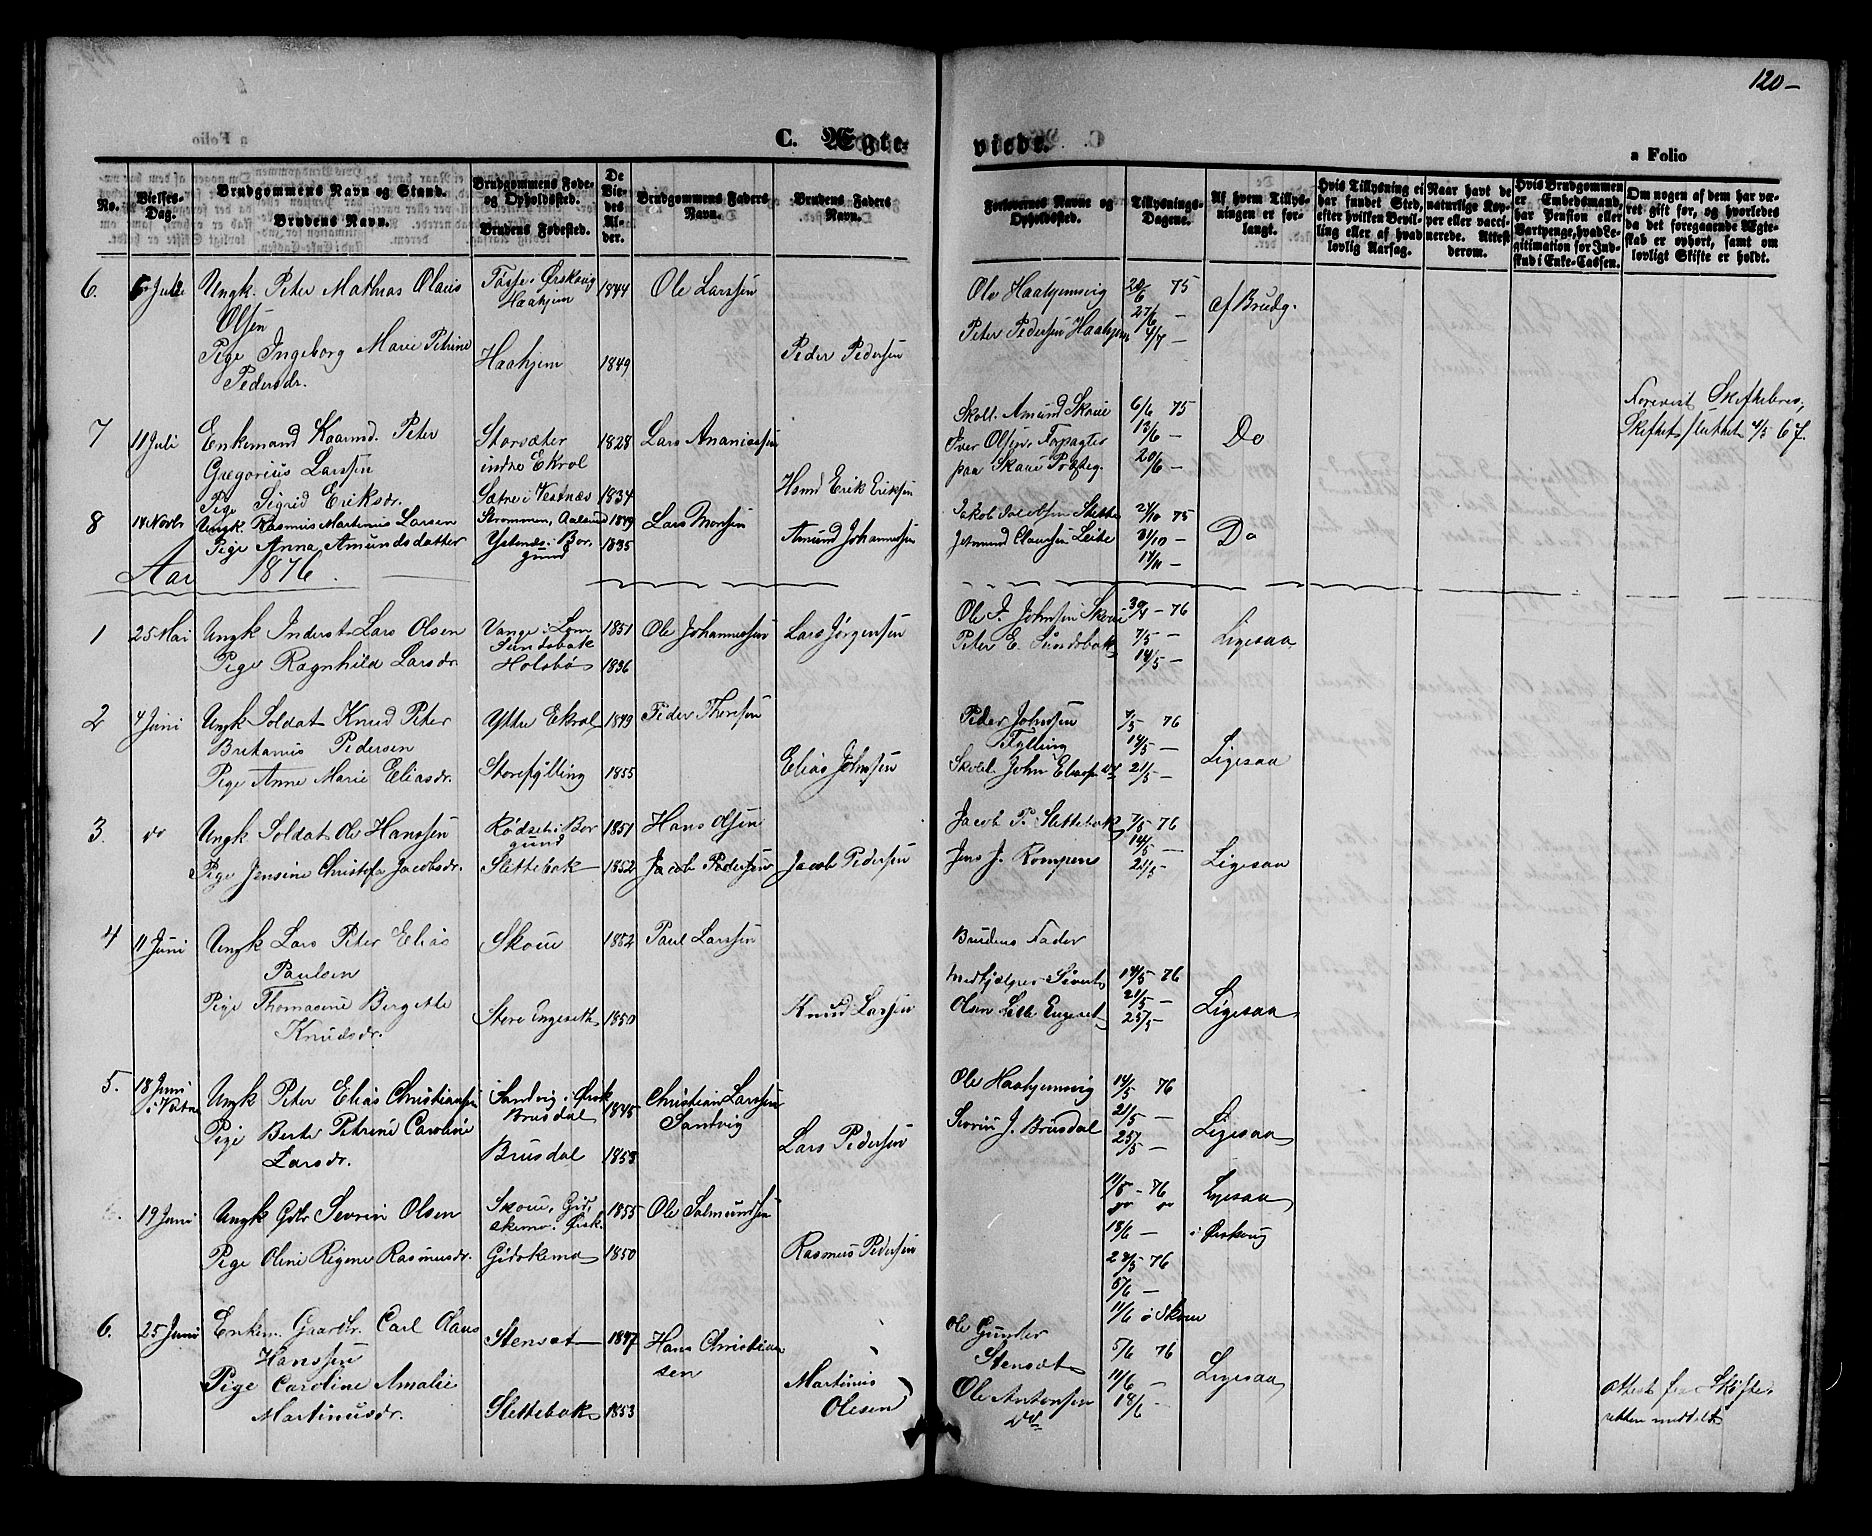 120-
C. Ægte-
viede.
a Folio
No.
Vielses-Dag.
Brudgommens Navn og Stand.
Brudens Navn.
Brudgommens Føde- og Opholdssted.
Brudens Fødested.
De Viedes Alder.
Brudgommens Faders Navn.
Brudens Faders Navn.
Forlovernes Navne og Opholdssted.
Tillysnings-Dagene.
Af hvem Tillysningen er forlangt.
Hvis Tillysning ei har fundet Sted, efter hvilken Bevilling eller af hvad lovlig Aarsag.
Naar havt de naturlige Kopper eller vaccinerede. Attest derom.
Hvis Brudgommen er Embedsmand, har Pension eller Vartpenge, hvad Legitimation for Indskud i Enke-Cassen.
Om nogen af dem har været gift før, og hvorledes da det foregaaende Ægteskab er ophørt, samt om lovligt Skifte er holdt.
6. Juli Ungk. Peter Mathias Olaus 1844 Ole Larssen Ole Haahjemsvig 20/6 75 af Brudg.
Olsen Haahjem 27/6 —
Pige Ingeborg Marie Petrine Haahjem 1849 Peder Pedersen Peter Pedersen Haahjem 4/7 —
Pedersdr.
7 11 Juli Enkemand Kaarmd. Peter Storsæter 1828 Lars Ananiassen Skoll. Amund Skoue 6/6 75 Do Skiftet sluttet 4/5 67.
Gregorius Larssen indre Ekrol Iver Olsen 13/6 —
Pige Sigrid Eriksdr. Sætre i Vestnæs 1834 Hsmd Erik Eriksen paa Skoue 20/6 —
8 14 Novbr Ungk Rasmus Martinus Larsen Strømmen, Aalesund 1849 Lars Monsen Jakob Jacobsen Slette 24/10 75 Do
Pige Anna Amundsdatter Ystenes i Borgund 1835 Amund Johannessen Jetmund Claussen Leite 31/10 —
Aar 1876.
1 25 Mai Ungk Inderst Lars Olsen Vange i Lom 1851 Ole Johannessen Lars Jørgensen Ole J. Johnsen Skoue 30/4 — 76 Ligesaa
Sundsbak 7/5 —
Pige Ragnhild Larsdr. Holsbø 1836 Peter E. Sundsbak 14/5 —
2 4 Juni Ungk Soldat Knud Peter Yttre Ekrol 1849 Peder Thorsen Peder Johnsen 7/5 76 Ligesaa
Britanus Pedersen Fylling 14/5 —
Pige Anne Marie Eliasdr. Storefylling 1855 Elias Johnsen Skoll. John 21/5 —
3. do Ungk Soldat Ole Hanssen Rødset i Borgund 1851 Hans Olsen Jacob P. Slettebak 7/5 76 Ligesaa
14/5 —
Pige Jensine Christofa Jacobsdr. Slettebak 1852 Jacob Pedersen Jacob Pedersen Jens J. Rompen 21/5 —
4 11 Juni Ungk Lars Peter Elias Skoue 1852 Paul Larssen Brudens Fader
Paulsen Medhjælper Sivert 14/5 76 Ligesaa
Pige Thomasine Bergitte Store Engeseth 1850 Knud Larsen Olsen Lille Engeset 21/5 —
Knudsdr. 25/5 —
5. 18 Juni i Vatne Ungk Peter Elias Christiansen Sandvig i Ørsk 1845 Christian Larssen Ole Haahjemsvig 14/5 76 Ligesaa
Brusdal Sandvig 21/5 —
Pige Berte Petrine Caroline Brusdal 1853 Lars Pedersen Sevrin J. Brusdal 25/5 —
Larsdr.
19 Juni Ungk Gdbr Sevrin Olsen Skoue, Gidskemo i Ørsk. 1855 Ole Salmundsen 76 Ligesaa
18/6 — i Ørskoug
Pige Oline Regine Rasmusdr. Gidskemo 1850 Rasmus Pedersen 76
5/6 —
11/6 i Skoue
6. 25 Juni Enkem. Gaardbr. Carl Olaus Stenset 1847 Hans Christiansen Ole Gunder 5/6 76 Ligesaa
Hanssen Stenset 11/6 —
Pige Caroline Amalie Martinus Ole Antonsen 18/6 — attest fra Skifte-
Martinusdr. Slettebak 1853 Olesen do retten meddelt